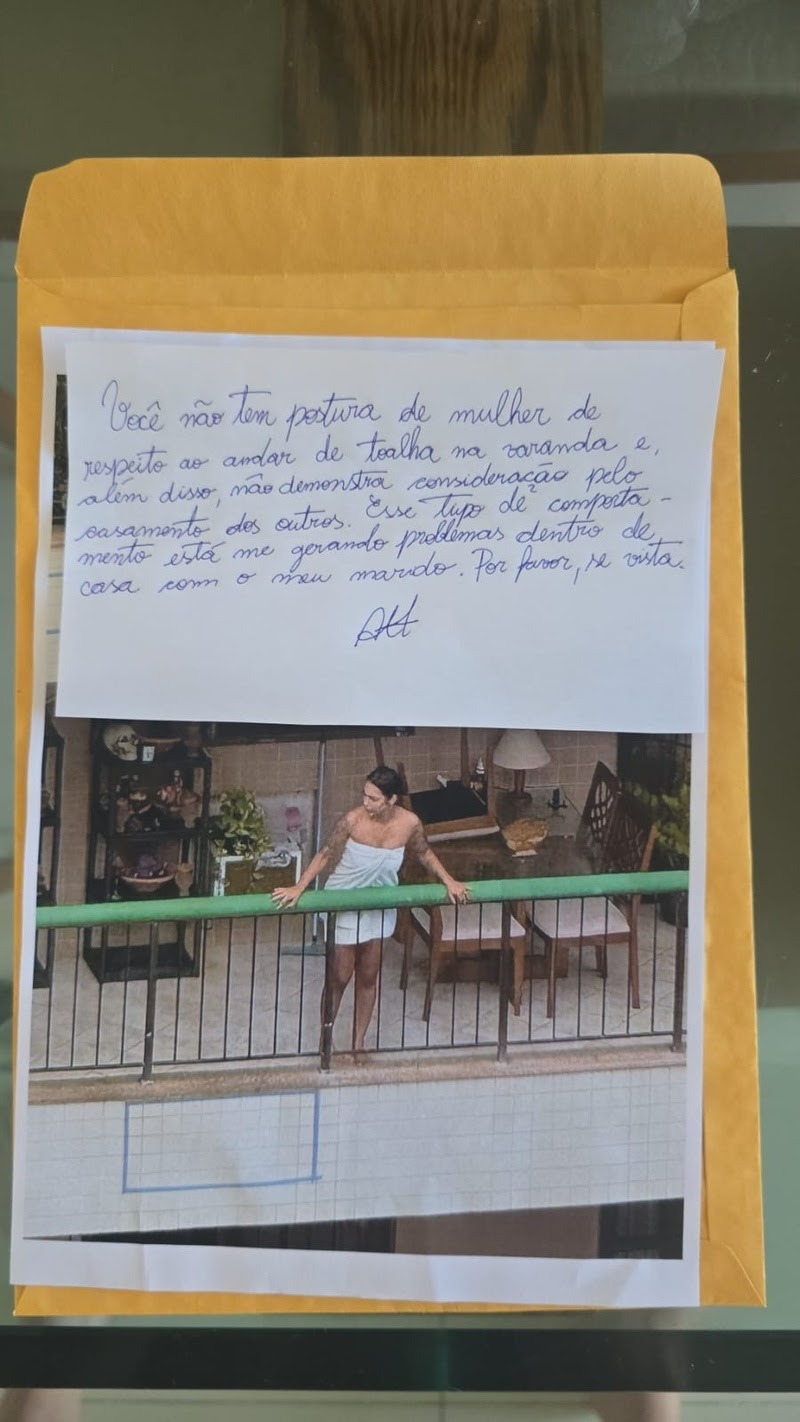 Você não tem postura de mulher de
respeito ao andar de toalha na varanda e,
além disso, não demonstra consideração pelo
casamento dos outros. Esse tipo de comporta-
mento está me gerando problemas dentro de
casa com o meu marido. Por favor, se vista.
Att